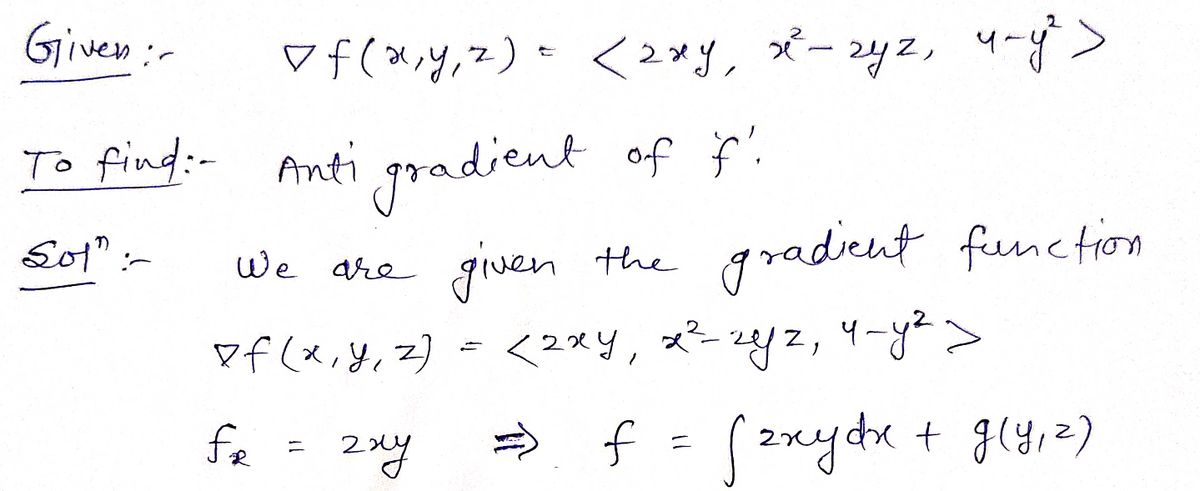 Given :- ∇f(x,y,z) = <2xy, x²-2yz, 4-y²>
To find:- Anti gradient of 'f'.
Solⁿ :- We are given the gradient function
∇f(x,y,z) = <2xy, x²-2yz, 4-y²>
fₓ = 2xy ⇒ f = ∫2xydx + g(y,z)